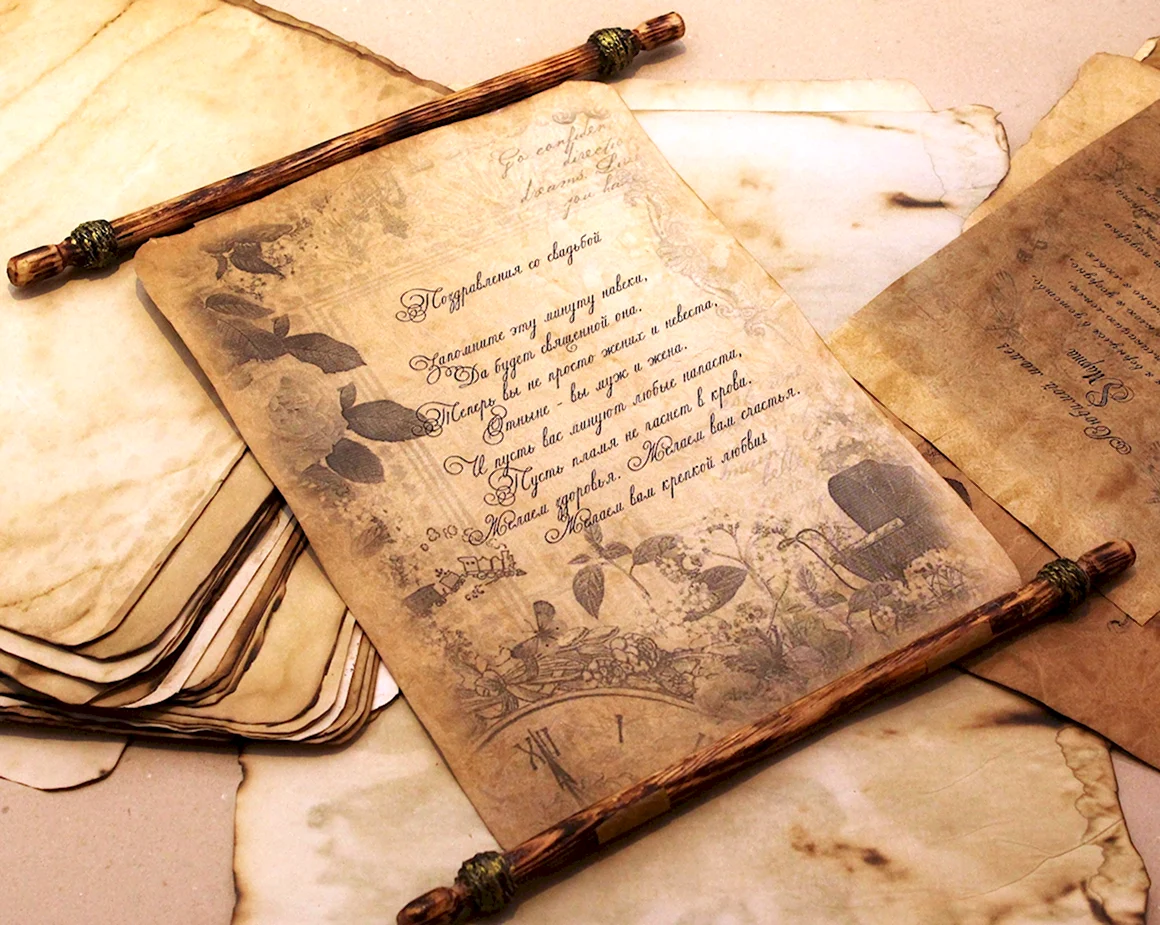 Go confiden
directio
dreams. Liv
you have
Поздравления со свадьбой
Запомните эту минуту навеки,
Да будет священной она.
Теперь вы не просто жених и невеста,
Отныне - вы муж и жена.
И пусть вас минуют любые напасти,
Пусть пламя не гаснет в крови.
Желаем здоровья. Желаем вам счастья.
Желаем вам крепкой любви!
XII
I
Любимой маме
8 Марта